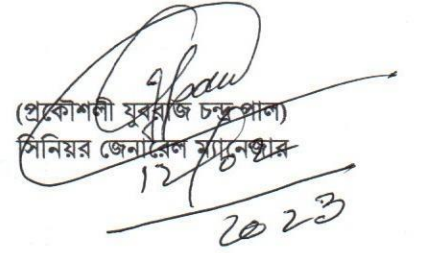 (প্রকৌশলী যুবরাজ চন্দ্র পাল)
সিনিয়র জেনারেল ম্যানেজার
2023